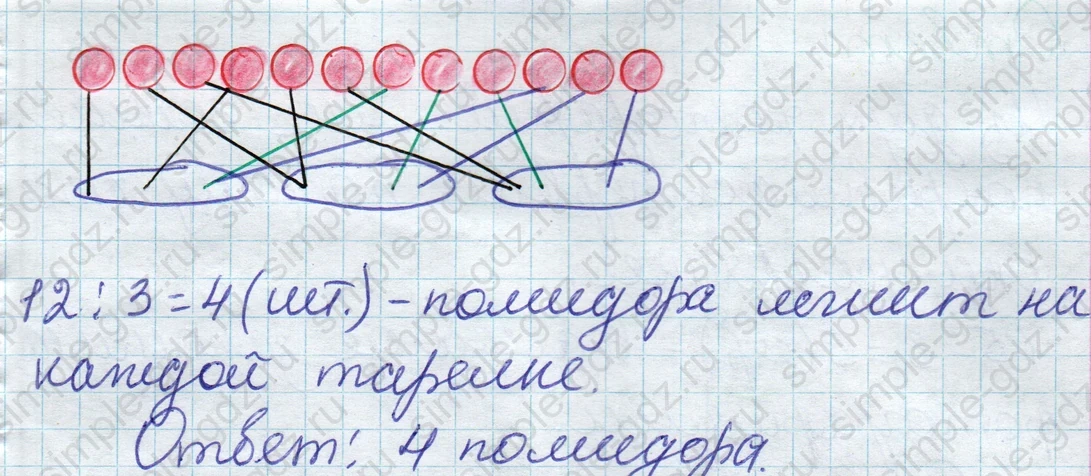 12 : 3 = 4 (шт.) - помидора лежит на
каждой тарелке.
Ответ: 4 помидора.
simple-gdz.ru